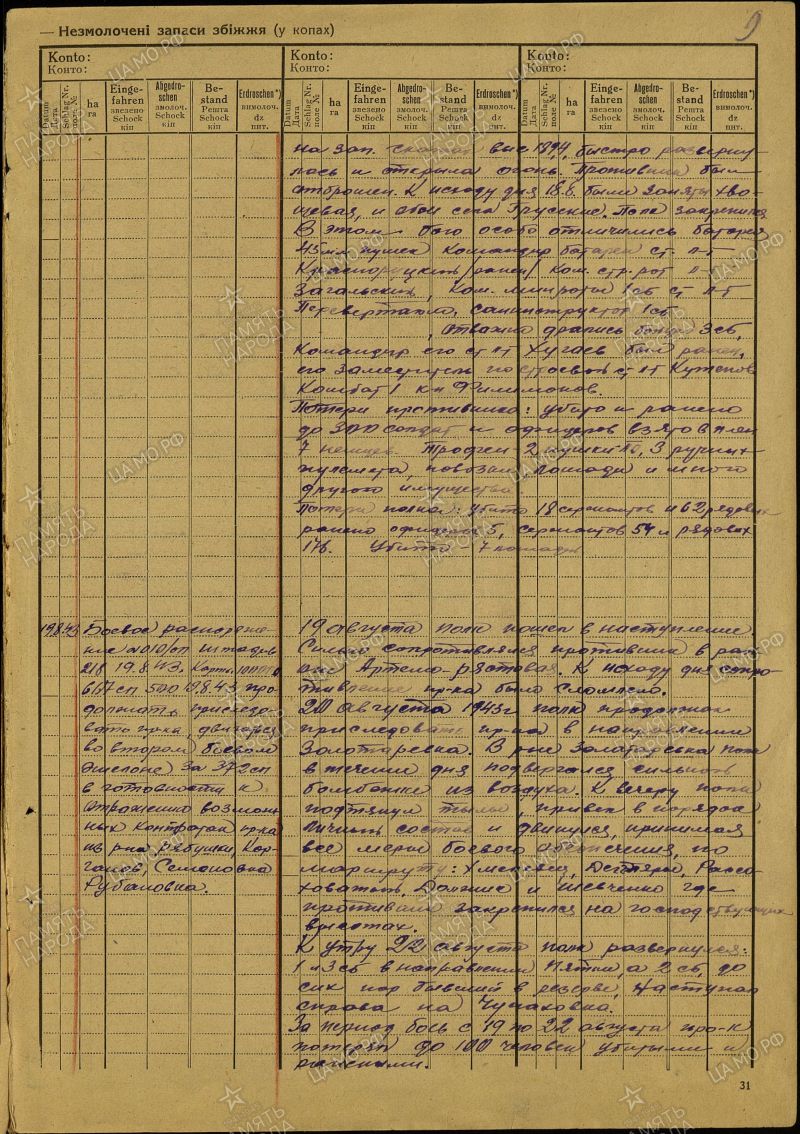 9
— Незмолочені запаси збіжжя (у копах)
Konto:
Конто:
Konto:
Конто:
Konto:
Конто:
Datum Дата Schlag Nr. поле № ha га Eingefahren звезено Schock кіп Abgedroschen змолоч. Schock кіп Bestand Решта Schock кіп Erdroschen*) вимолоч. dz цнт.
Datum Дата Schlag Nr. поле № ha га Eingefahren звезено Schock кіп Abgedroschen змолоч. Schock кіп Bestand Решта Schock кіп Erdroschen*) вимолоч. dz цнт.
Datum Дата Schlag Nr. поле № ha га Eingefahren звезено Schock кіп Abgedroschen змолоч. Schock кіп Bestand Решта Schock кіп Erdroschen*) вимолоч. dz цнт.
на зап. скатах выс 189,4, быстро разверну-
лась и открыла огонь. Противник был
отброшен. К исходу дня 18.8. были заняты
и села Грусские. Полк закрепился
В этом бою особо отличились батарея
45 мм пушек командир батареи ст. л-т
/ранен/ ком. стр. рот л-т
Загальский, ком. минроты 1 сб ст л-т
санинструктор 1 сб
отважно дрались бойцы 3 сб,
Командир его ст л-т Хугаев был ранен,
его заместитель по ст л-т
Комбат 1 к-н Филимонов.
Потери противника: убито и ранено
до 300 солдат и офицеров взято в плен
7 немцев. Трофеи - 2 пушки, 3 ручных
пулемета, повозки, лошади и много
другого имущества.
Потери полка: убито 18 сержантов и 62 рядовых
ранено офицеров 5, сержантов 54 и рядовых
176. Убито - 7 лошадей
19.8.43 Боевое распоряже-
ние №010/оп штадив
218 19.8.43. Карта 100000
667 сп 500 19.8.43 про-
должать преследо-
вать пр-ка, двигаться
во втором боевом
эшелоне за 372 сп
в готовности к
отражению возмож-
ных контратак пр-ка
из р-на Рябушки,
Семеновка
Рубановка.
19 августа полк пошел в наступление.
Сильно сопротивлялся противник в рай-
оне Артемо-Растовая. К исходу дня сопро-
тивление пр-ка было сломлено.
20 августа 1943 г полк продолжал
преследовать пр-ка в направлении
Золотаревка. В р-не Золотаревка полк
в течении дня подвергался сильной
бомбежке из воздуха. К вечеру полк
подтянул тылы, привел в порядок
личный состав и двинулся, принимая
все меры боевого обеспечения, по
маршруту: Дегтяри, Рассо-
ховатый, Должик и Шевченко где
противник закрепился на господствующих
высотах.
К утру 22 августа полк развернулся:
1 и 3 сб в направлении Пятки, а 2 сб, до
сих пор бывший в резерве, наступал
справа на Чупаховка.
За период боев с 19 по 22 августа пр-к
потерял до 100 человек убитыми и
ранеными.
31
ПАМЯТЬ НАРОДА
ЦАМО.РФ